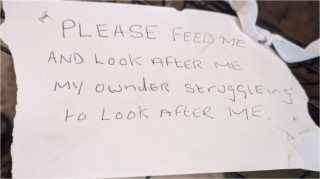 PLEASE FEED ME
AND LOOK AFTER ME
MY OWNDER STRUGGLEING
to LOOK AFTER ME.